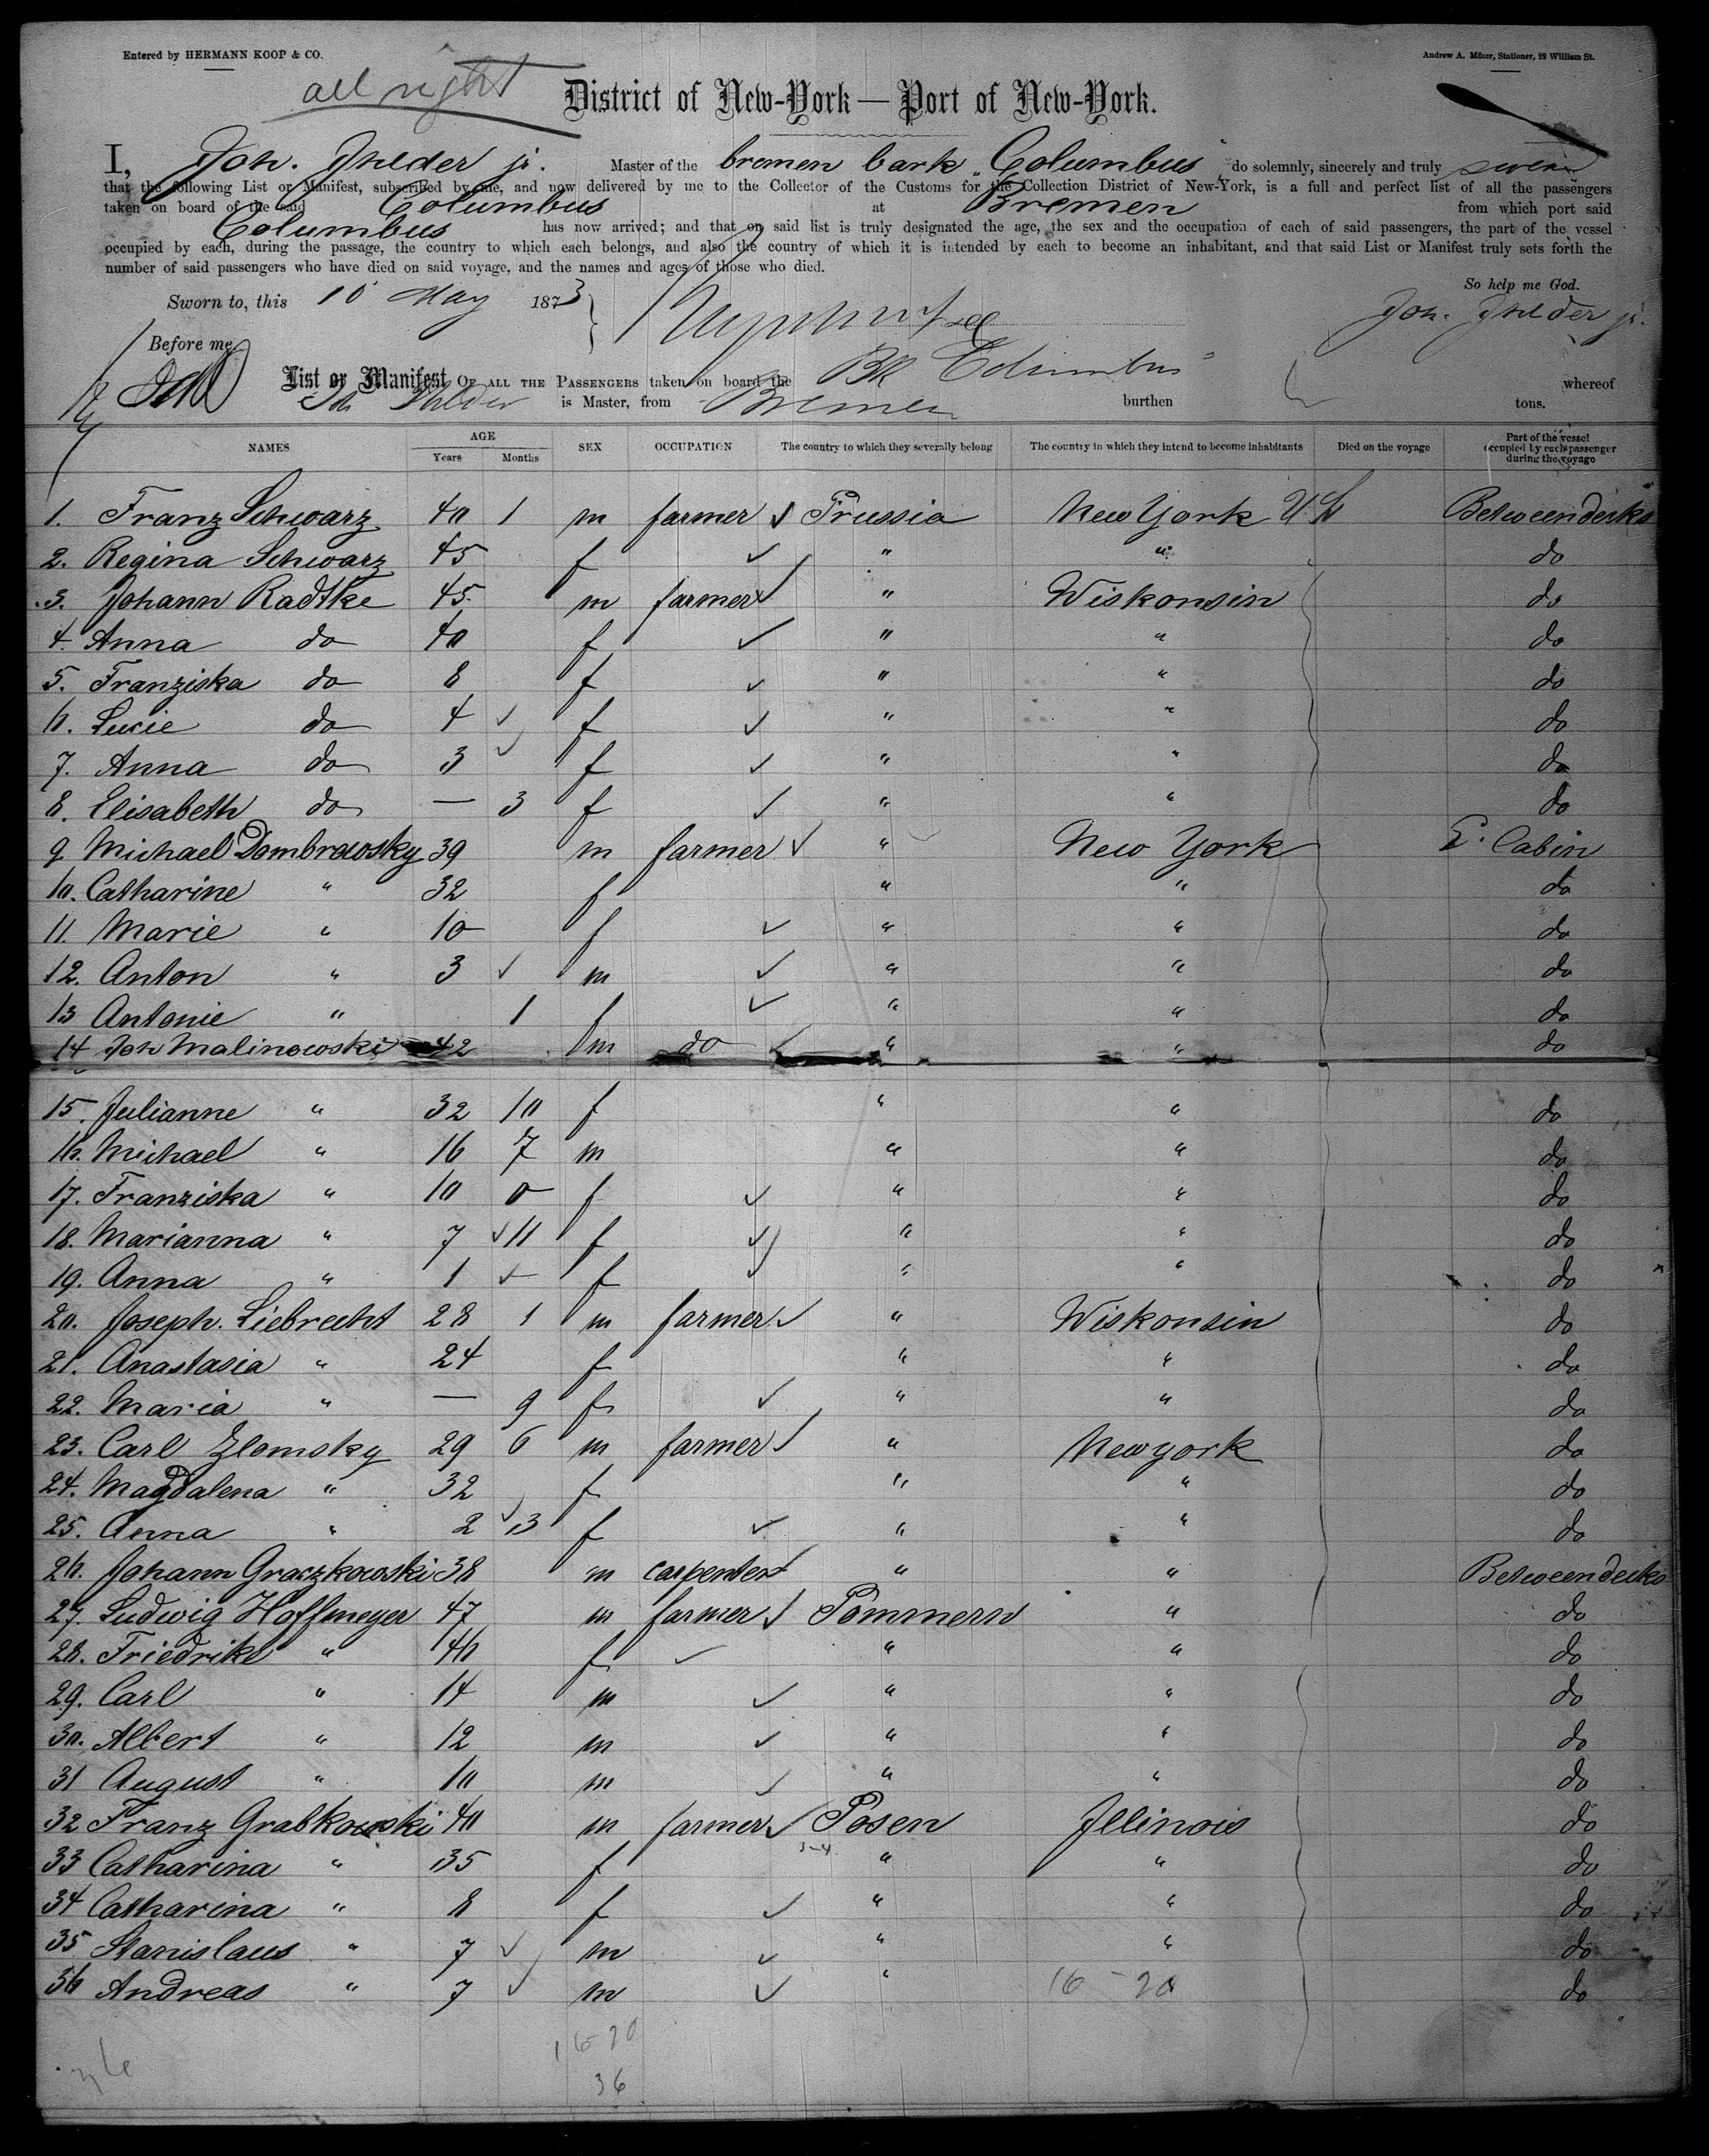 Entered by HERMANN KOOP & CO.
Andrew A. Möser, Stationer, 22 William St.
all right
District of New-York — Port of New-York.
I, Joh. Ihlder jr. Master of the bremen bark "Columbus" do solemnly, sincerely and truly swear
that the following List or Manifest, subscribed by me, and now delivered by me to the Collector of the Customs for the Collection District of New-York, is a full and perfect list of all the passengers
taken on board of the said Columbus at Bremen from which port said
Columbus has now arrived; and that on said list is truly designated the age, the sex and the occupation of each of said passengers, the part of the vessel
occupied by each, during the passage, the country to which each belongs, and also the country of which it is intended by each to become an inhabitant, and that said List or Manifest truly sets forth the
number of said passengers who have died on said voyage, and the names and ages of those who died.
So help me God.
Sworn to, this 10 May 1873
Joh. Ihlder jr.
Before me,
List or Manifest OF ALL THE PASSENGERS taken on board the Bk Columbus whereof
Ihlder is Master, from Bremen burthen tons.
NAMES AGE Years Months SEX OCCUPATION The country to which they severally belong The country in which they intend to become inhabitants Died on the voyage Part of the vessel occupied by each passenger during the voyage
1. Franz Schwarz 40 1 m farmer Prussia New York U.S. Betweendecks
2. Regina Schwarz 45 f " " do
3. Johann Radtke 45 m farmer " Wiskonsin do
4. Anna do 40 f " " do
5. Franziska do 8 f " " do
6. Lucie do 4 f " " do
7. Anna do 3 f " " do
8. Elisabeth do — 3 f " " do
9 Michael Dombrowsky 39 m farmer " New York Cabin
10. Catharine " 32 f " " do
11. Marie " 10 f " " do
12. Anton " 3 m " " do
13 Antonie " 1 f " " do
14 Joh Malinowski 42 m do " " do
15. Julianne " 32 10 f " " do
16. Michael " 16 7 m " " do
17. Franziska " 10 0 f " " do
18. Marianna " 7 11 f " " do
19. Anna " 1 f " " do
20. Joseph. Liebrecht 28 1 m farmer " Wiskonsin do
21. Anastasia " 24 f " " do
22. Maria " — 9 f " " do
23. Carl Zlomsky 29 6 m farmer " Newyork do
24. Magdalena " 32 f " " do
25. Anna " 2 3 f " " do
26. Johann Graczkowski 38 m carpenter " " Betweendecks
27. Ludwig Hoffmeyer 47 m farmer Pommern " do
28. Friedrike " 46 f " " do
29. Carl " 14 m " " do
30. Albert " 12 m " " do
31 August " 10 m " " do
32 Franz Grabkowski 40 m farmer Posen Illinois do
3-4
33 Catharina " 35 f " " do
34 Catharina " 8 f " " do
35 Stanislaus " 7 m " " do
36 Andreas " 7 m " " do
16 - 20
16-20
36